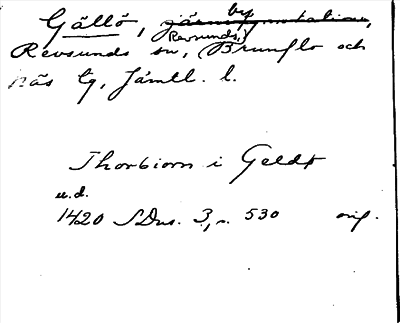 Gällö, by
Revsunds sn, (Revsunds,) Brunflo och
Näs tg, Jämtl. l.
Thorbiorn i Geldø
u.d.
1420 SDns. 3, s. 530 orig.